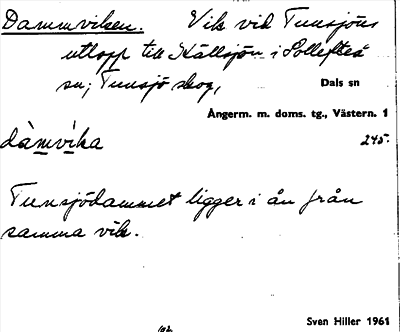 Dammviken. Vik vid Tunsjöns
utlopp till Hällsjön i Sollefteå
sn; Tunsjö skog, Dals sn
Ångerm. m. doms. tg., Västern. 1
dàmvìka 245.
Tunsjödammet ligger i ån från
samma vik.
Sven Hiller 1961